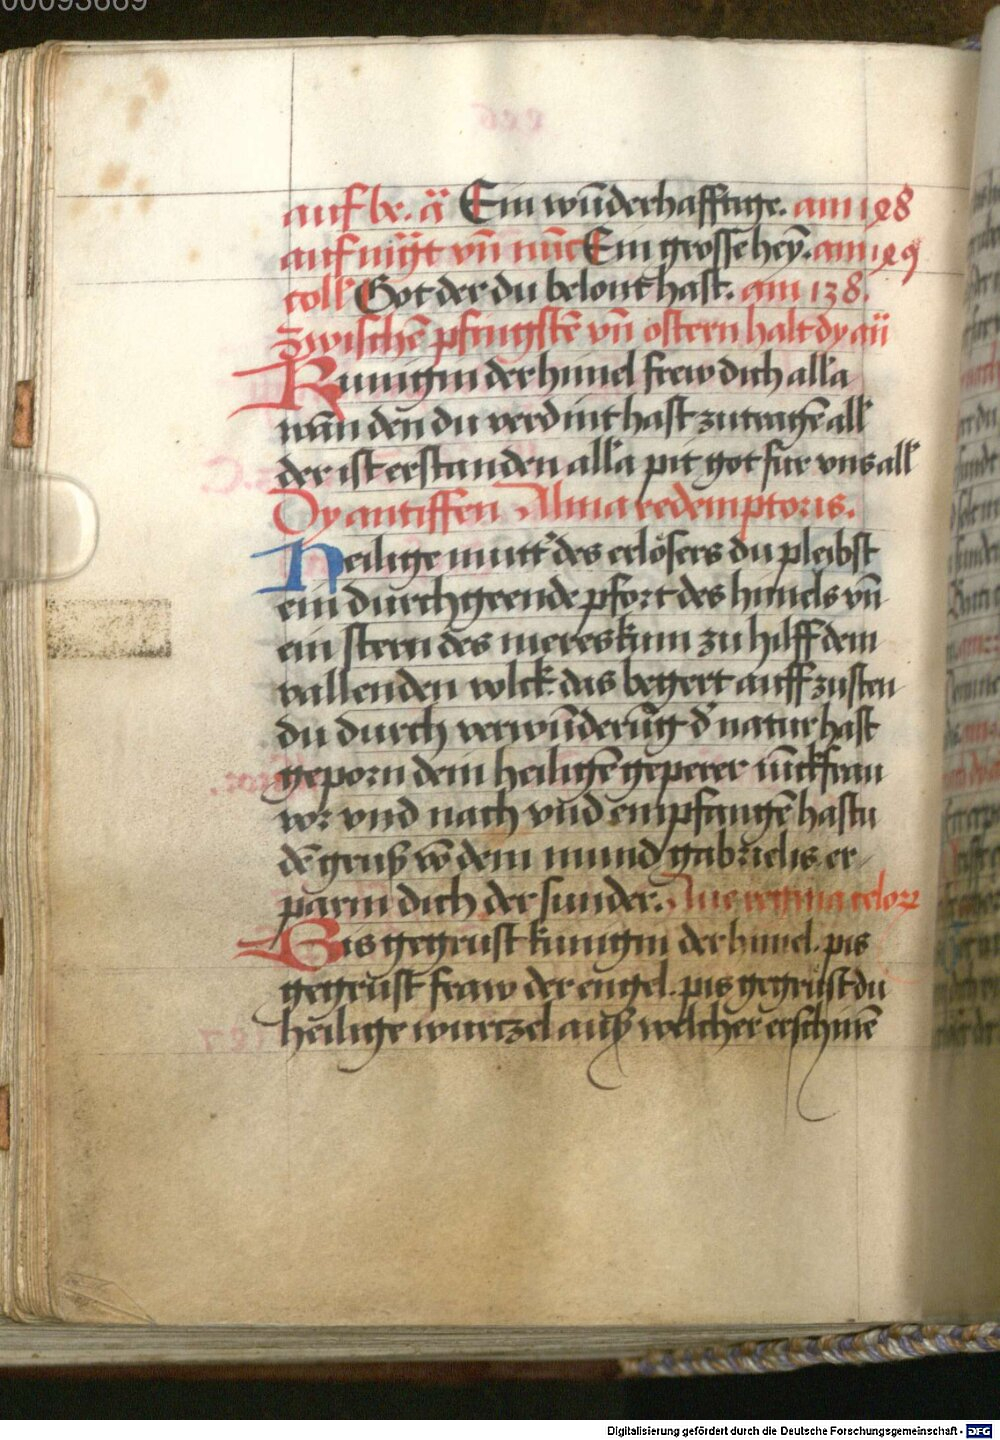 00093669
auf be. ā Ein wūderhafftige. am 128
auf mḡt vn̄ nūc Ein grosse hey. am 129
coll' Got der du belont hast. am 138.
Zwischē pfingstē vn̄ ostern halt dy aū
Kunigin der himel frew dich alla
wān den du verdint hast zu tragē all'
der ist erstanden alla pit got fur vns all'
Dy antiffen Alma redemptoris.
Heilige mutt' des erlösers du pleibst
ein durchgeende pfort des himels vn̄
ein stern des meres kum zu hilff dem
vallenden volck das begert auff zu sten
du durch verwūderūg d' natur hast
geporn dem heiligē geperer iūckfrau
vor vnd nach vnd empfangē hastu
dē gruß vō dem mund gabrielis er
parm dich der sunder. Aue regina celoꝝ
Bis gegrust kunigin der himel. pis
gegrust fraw der engel. pis gegrust du
heilige wurtzel auß welcher erschinē
Digitalisierung gefördert durch die Deutsche Forschungsgemeinschaft - DFG